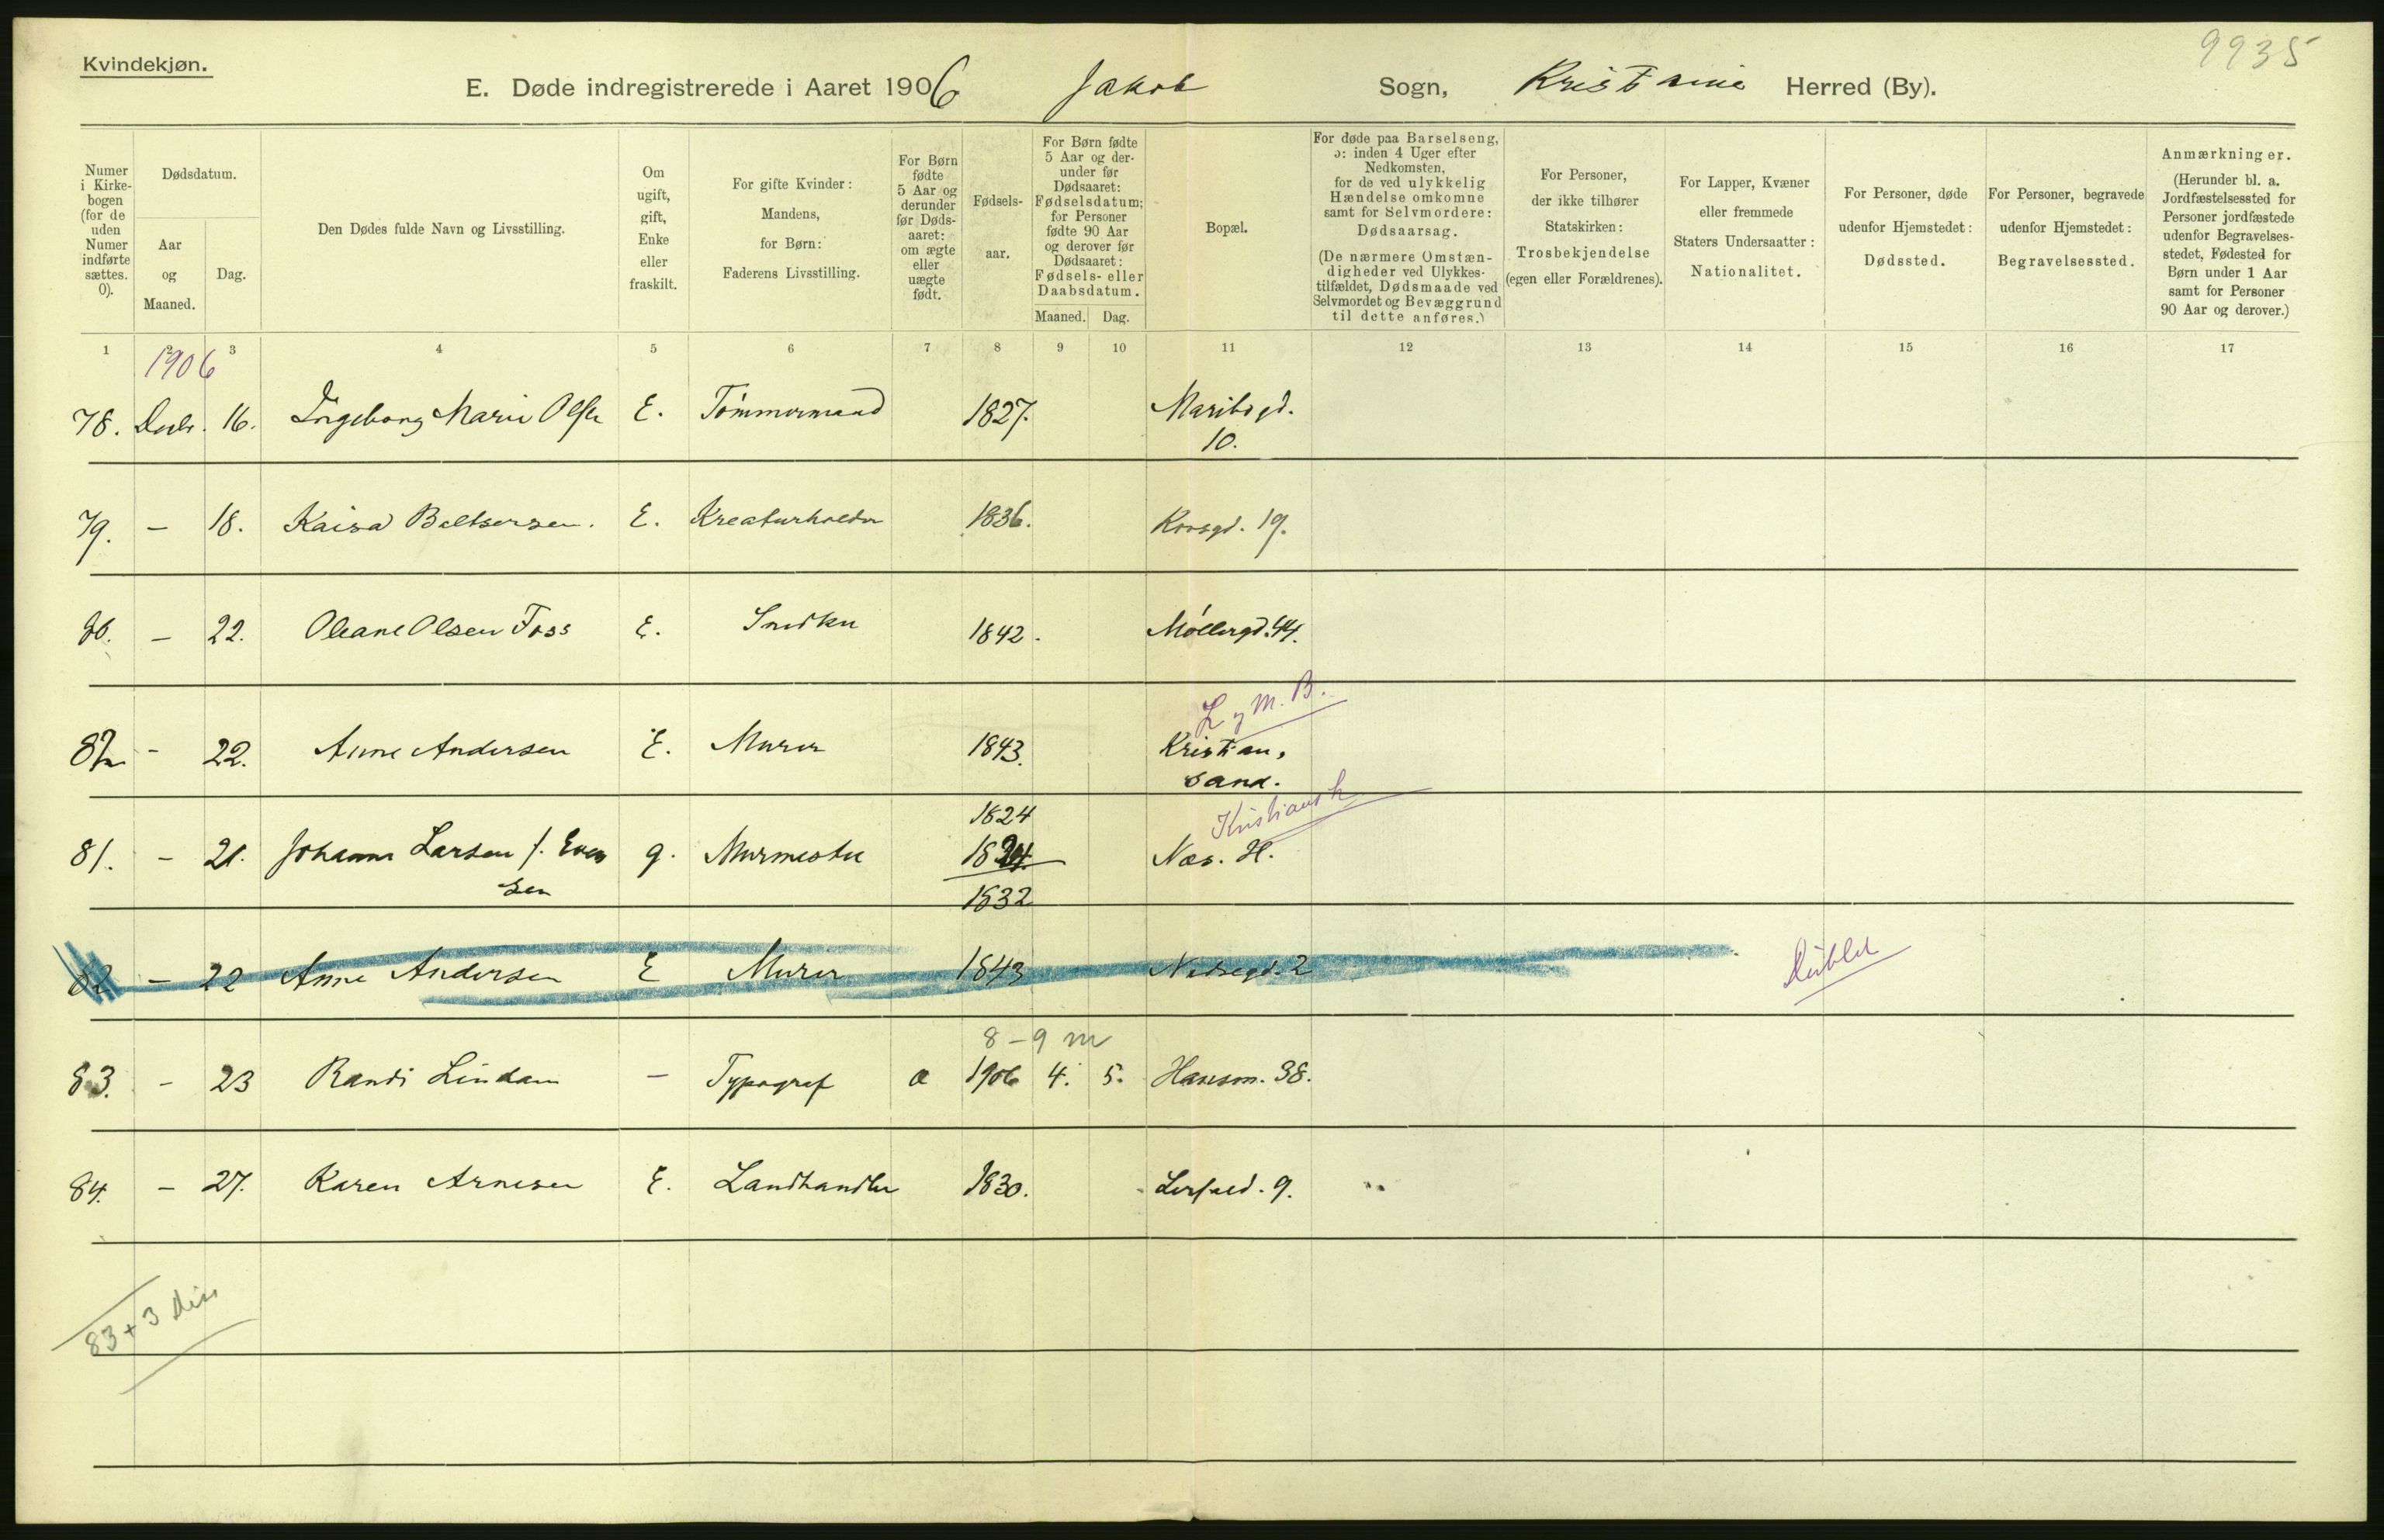 9935
Kvindekjøn.
E. Døde indregistrerede i Aaret 1906 Jakob Sogn, Kristania Herred (By).
Numer i Kirkebogen (for de uden Numer indførte sættes. 0).
Dødsdatum.
Aar og Maaned.
Dag.
Den Dødes fulde Navn og Livsstilling.
Om ugift, gift, Enke eller fraskilt.
For gifte Kvinder: Mandens, for Børn: Faderens Livsstilling.
For Børn fødte 5 Aar og derunder før Dødsaaret: om ægte eller uægte født.
Fødselsaar.
For Børn fødte 5 Aar og derunder før Dødsaaret: Fødselsdatum; for Personer fødte 90 Aar og derover før Dødsaaret: Fødsels- eller Daabsdatum.
Maaned. Dag.
Bopæl.
For døde paa Barselseng, ɔ: inden 4 Uger efter Nedkomsten, for de ved ulykkelig Hændelse omkomne samt for Selvmordere: Dødsaarsag.
(De nærmere Omstændigheder ved Ulykkestilfældet, Dødsmaade ved Selvmordet og Bevæggrund til dette anføres.)
For Personer, der ikke tilhører Statskirken: Trosbekjendelse (egen eller Forældrenes).
For Lapper, Kvæner eller fremmede Staters Undersaatter: Nationalitet.
For Personer, døde udenfor Hjemstedet: Dødssted.
For Personer, begravede udenfor Hjemstedet: Begravelsessted.
Anmærkninger.
(Herunder bl. a. Jordfæstelsessted for Personer jordfæstede udenfor Begravelsesstedet, Fødested for Børn under 1 Aar samt for Personer 90 Aar og derover.)
1 2 3 4 5 6 7 8 9 10 11 12 13 14 15 16 17
1906
78. Decbr. 16. Ingeborg Marie Olsen E. Tømmermand 1827. Maribogd.
10.
79. — 18. Kaisa Baltsersen. E. Kreaturholder 1836. Korsgd. 19.
80. — 22. Oleane Olsen Foss E. Snedker 1842. Møllergd. 44.
L. og M. B.
82 - 22. Anne Andersen E. Murer 1843. Kristian,
sand.
Kristiansh
1824
81. - 21. Johanne Larsen f. Even g. Murmester 1824. Næs. H.
sen
1832
82 — 22 Anne Andersen E Murer 1843 Nedregd. 2 Dublet
8-9 m
83. - 23 Randi Lindam — Typograf æ 1906 4. 5. Hausm. 38.
84. - 27. Karen Arnesen E. Landhandler 1830. Lerfald. 9.
83 + 3 diss